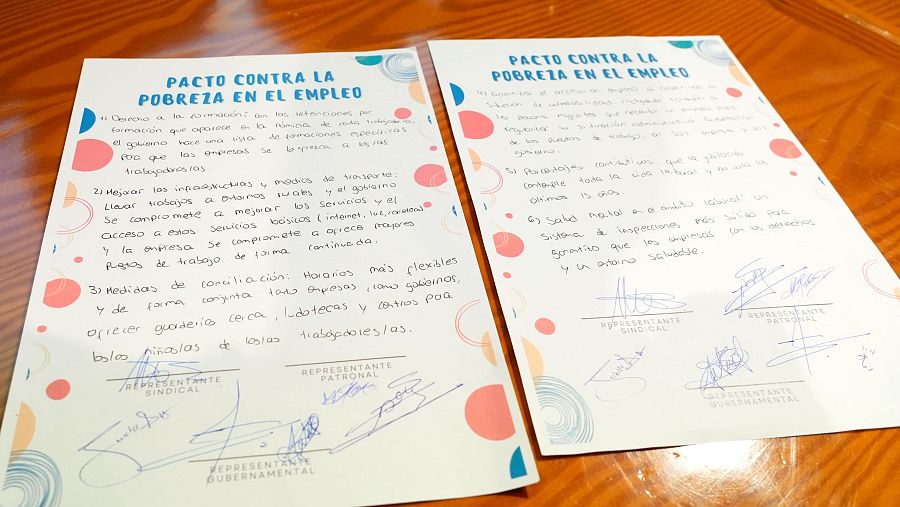 PACTO CONTRA LA
POBREZA EN EL EMPLEO
1) Derecho a la formación: con las retenciones por
formación que aparece en la nómina de cada trabajador/a,
el gobierno hace una lista de formaciones específicas
para que las empresas se lo ofrezca a los/as
trabajadores/as.
2) Mejorar las infraestructuras y medios de transporte:
Llevar trabajos a entornos rurales y el gobierno
se compromete a mejorar los servicios y el
acceso a estos servicios básicos (internet, luz, carreteras)
y la empresa se compromete a ofrecer mayores
puestos de trabajo de forma continuada.
3) Medidas de conciliación: Horarios más flexibles
y de forma conjunta tanto empresas, como gobiernos,
ofrecer guarderías cerca, ludotecas y centros para
los/as niños/as de los/as trabajadores/as.
REPRESENTANTE
SINDICAL
REPRESENTANTE
PATRONAL
REPRESENTANTE
GUBERNAMENTAL
PACTO CONTRA LA
POBREZA EN EL EMPLEO
4) Garantizar el acceso al empleo a colectivos en
situación de vulnerabilidad incluyendo también a
las personas migrantes que necesitan un empleo para
regularizar su situación administrativa.
de los puestos de trabajo, al 50% empresa y 50%
gobierno.
5) Porcentajes contributivos, que la jubilación
contemple toda la vida laboral y no solo los
últimos 15 años.
6) Salud mental en el ámbito laboral: un
sistema de inspecciones más sólido para
garantizar que las empresas con los derechos
y un entorno saludable.
REPRESENTANTE
SINDICAL
REPRESENTANTE
PATRONAL
REPRESENTANTE
GUBERNAMENTAL